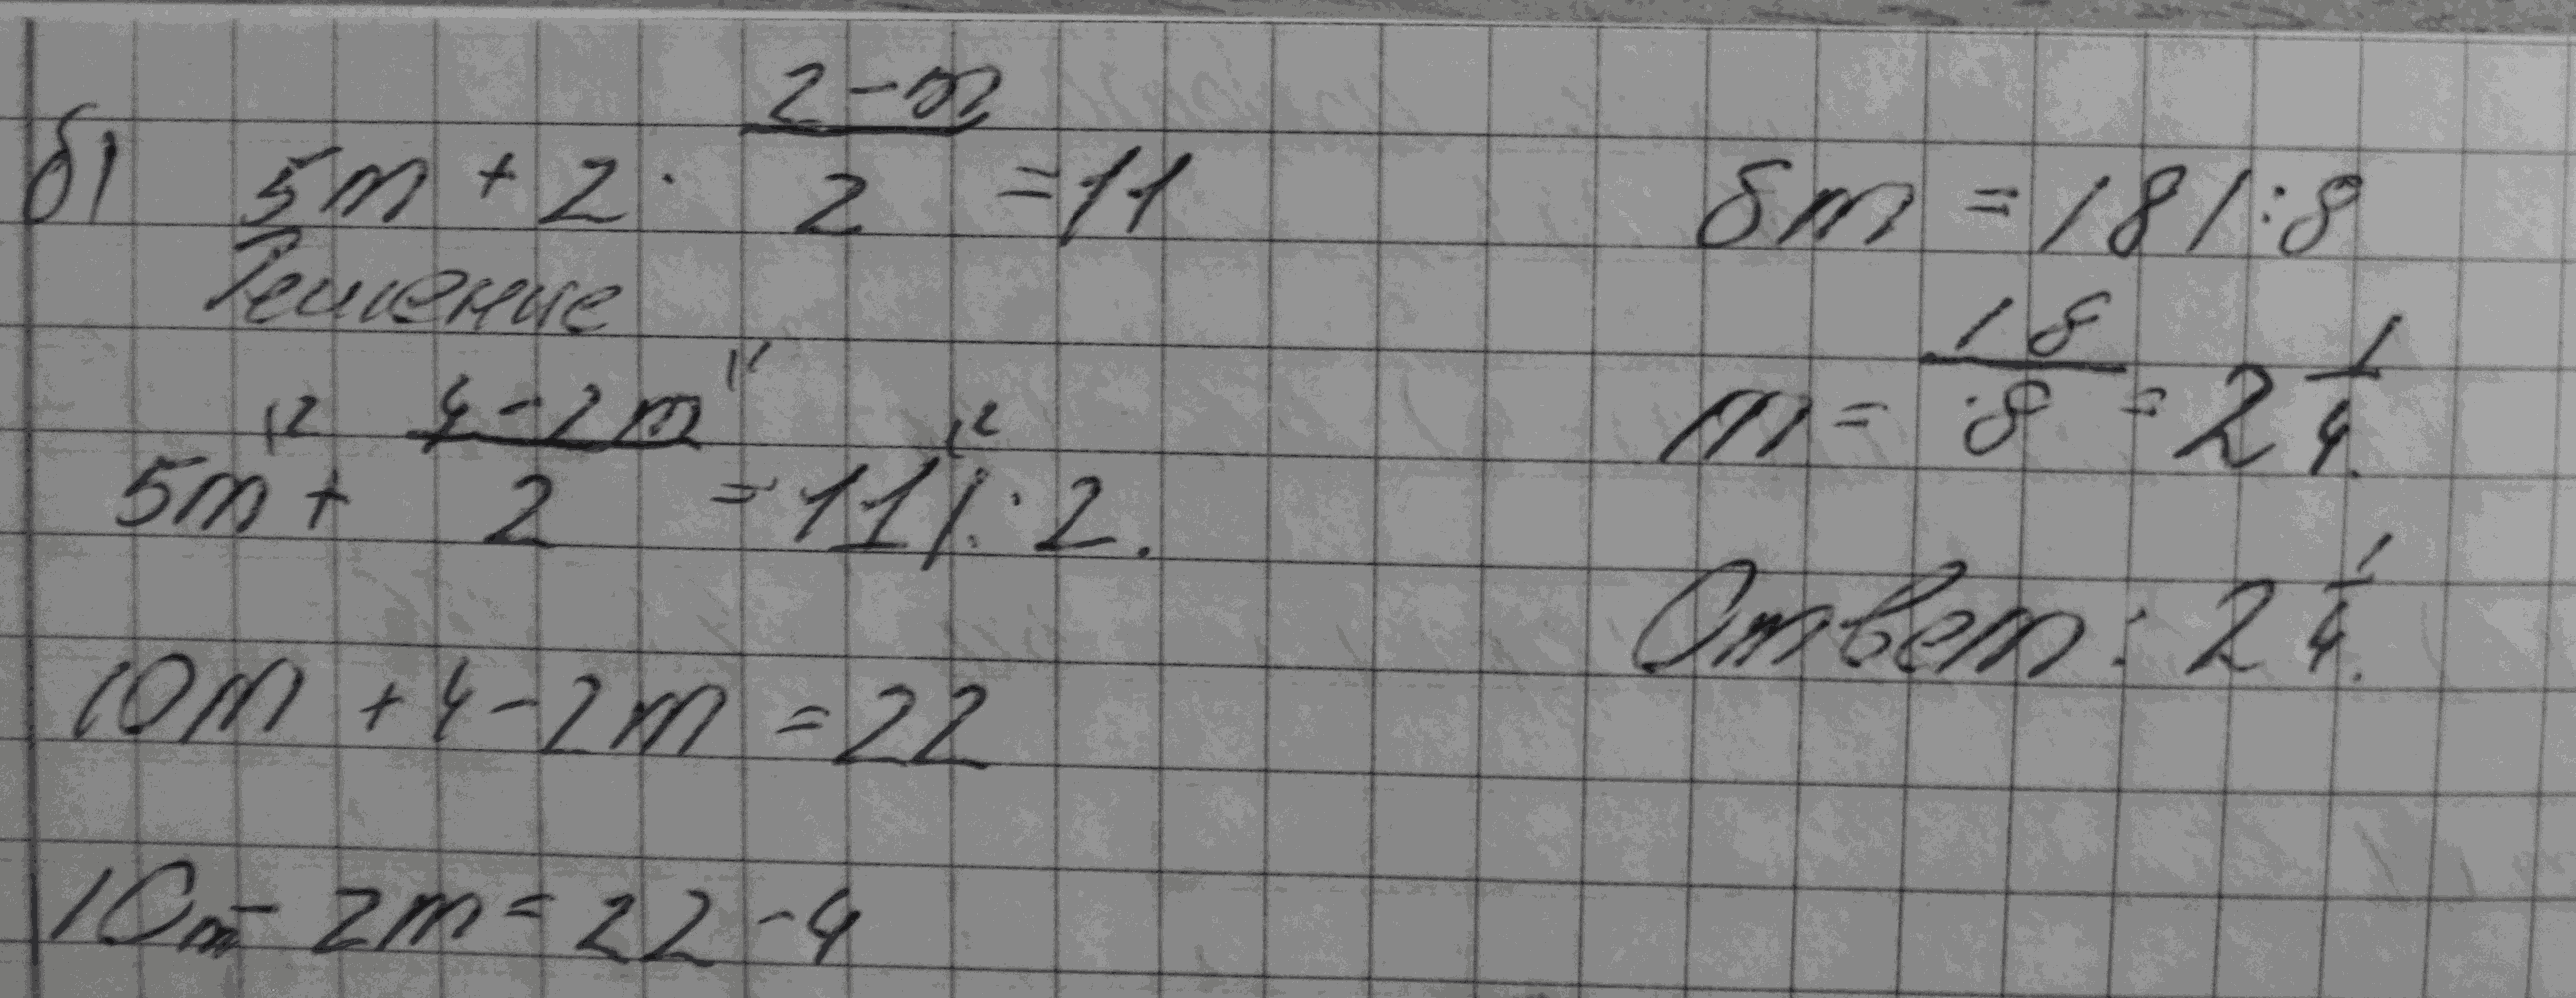 б) 5m + 2 · (2-m)/2 = 11
Решение
5m|² + (4-2m)/2|¹ = 11|² |: · 2.
10m + 4 - 2m = 22
10m - 2m = 22 - 4
8m = 18 | : 8
m = 18/8 = 2 1/4.
Ответ: 2 1/4.